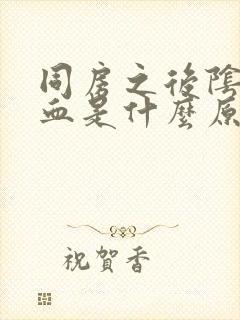 同房之後陰
血是什麼原
祝賀香